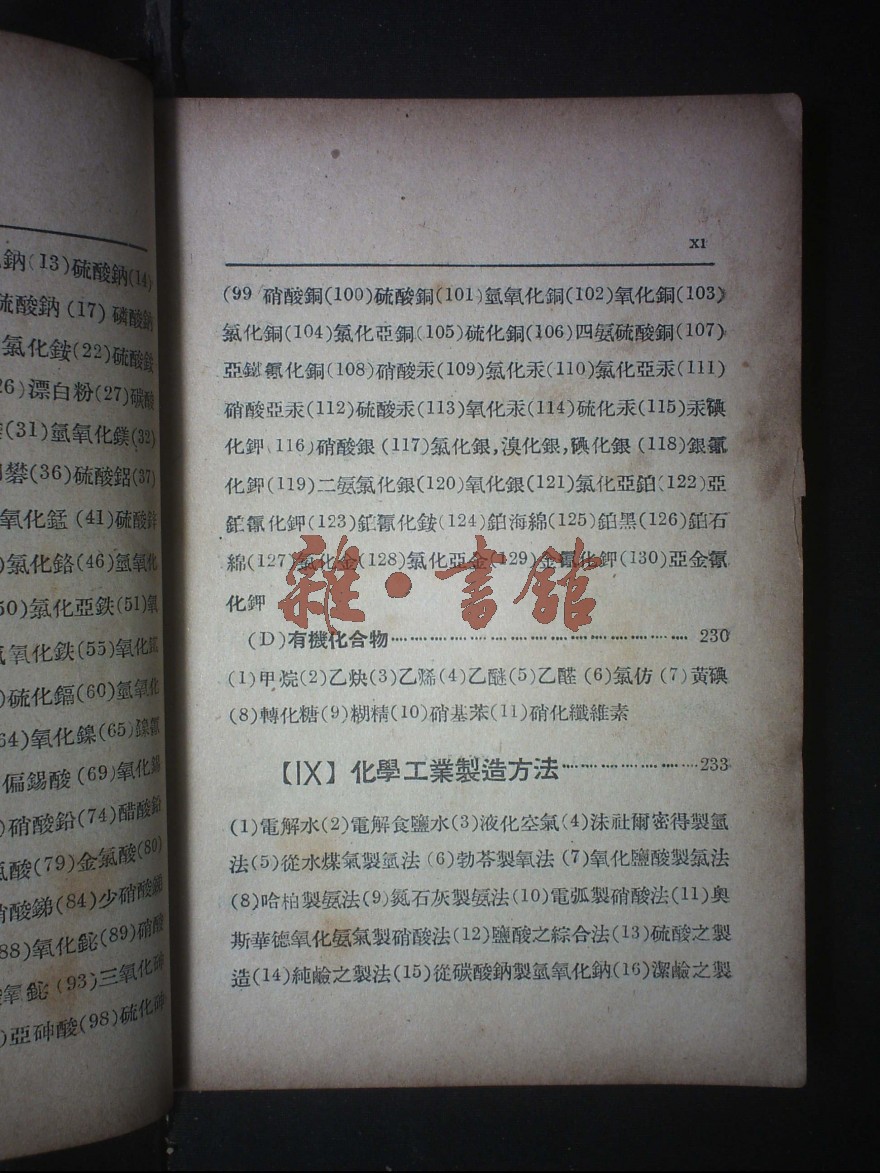 鈉(13)硫酸鈉(14)
硫酸鈉(17)磷酸鈉
氯化銨(22)硫酸銨
26)漂白粉(27)碳酸
(31)氫氧化鎂(32)
礬(36)硫酸鋁(37)
氧化錳(41)硫酸鋅
)氯化鉻(46)氫氧化
50)氯化亞鉄(51)氧
氧化鉄(55)氧化
)硫化鎘(60)氫氧化
64)氧化鎳(65)鎳氰
偏錫酸(69)氧化錫
)硝酸鉛(74)醋酸鉛
酸(79)金氯酸(80)
硝酸銻(84)少硝酸銻
88)氧化鉍(89)硝酸
酸氧鉍(93)三氧化砷
)亞砷酸(98)硫化砷
XI
(99 硝酸銅(100)硫酸銅(101)氫氧化銅(102)氧化銅(103)
氯化銅(104)氯化亞銅(105)硫化銅(106)四氨硫酸銅(107)
亞鐵氰化銅(108)硝酸汞(109)氯化汞(110)氯化亞汞(111)
硝酸亞汞(112)硫酸汞(113)氧化汞(114)硫化汞(115)汞碘
化鉀 116)硝酸銀(117)氯化銀,溴化銀,碘化銀(118)銀氰
化鉀(119)二氨氯化銀(120)氧化銀(121)氯化亞鉑(122)亞
鉑氰化鉀(123)鉑氰化銨(124)鉑海綿(125)鉑黑(126)鉑石
綿(127)氯化金(128)氯化亞金(129)金氰化鉀(130)亞金氰
化鉀
雜·書館
(D)有機化合物……………………………………230
(1)甲烷(2)乙炔(3)乙烯(4)乙醚(5)乙醛(6)氯仿(7)黃碘
(8)轉化糖(9)糊精(10)硝基苯(11)硝化纖維素
【IX】化學工業製造方法…………………233
(1)電解水(2)電解食鹽水(3)液化空氣(4)沫社爾密得製氫
法(5)從水煤氣製氫法(6)勃苓製氧法(7)氧化鹽酸製氯法
(8)哈柏製氨法(9)氮石灰製氨法(10)電弧製硝酸法(11)奧
斯華德氧化氨氣製硝酸法(12)鹽酸之綜合法(13)硫酸之製
造(14)純鹼之製法(15)從碳酸鈉製氫氧化鈉(16)潔鹼之製